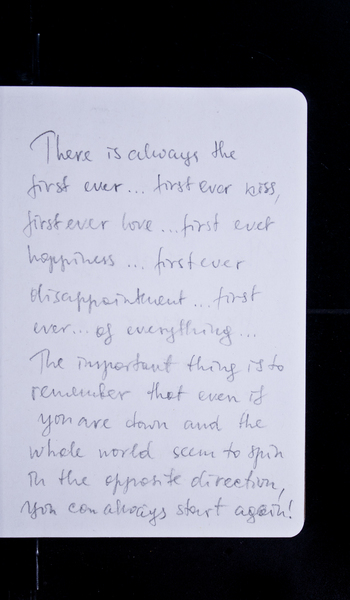 There is always the
first ever... first ever kiss,
first ever love... first ever
happiness... first ever
disappointment... first
ever... of everything...
The important thing is to
remember that even if
you are down and the
whole world seem to spin
in the opposite direction,
you can always start again!